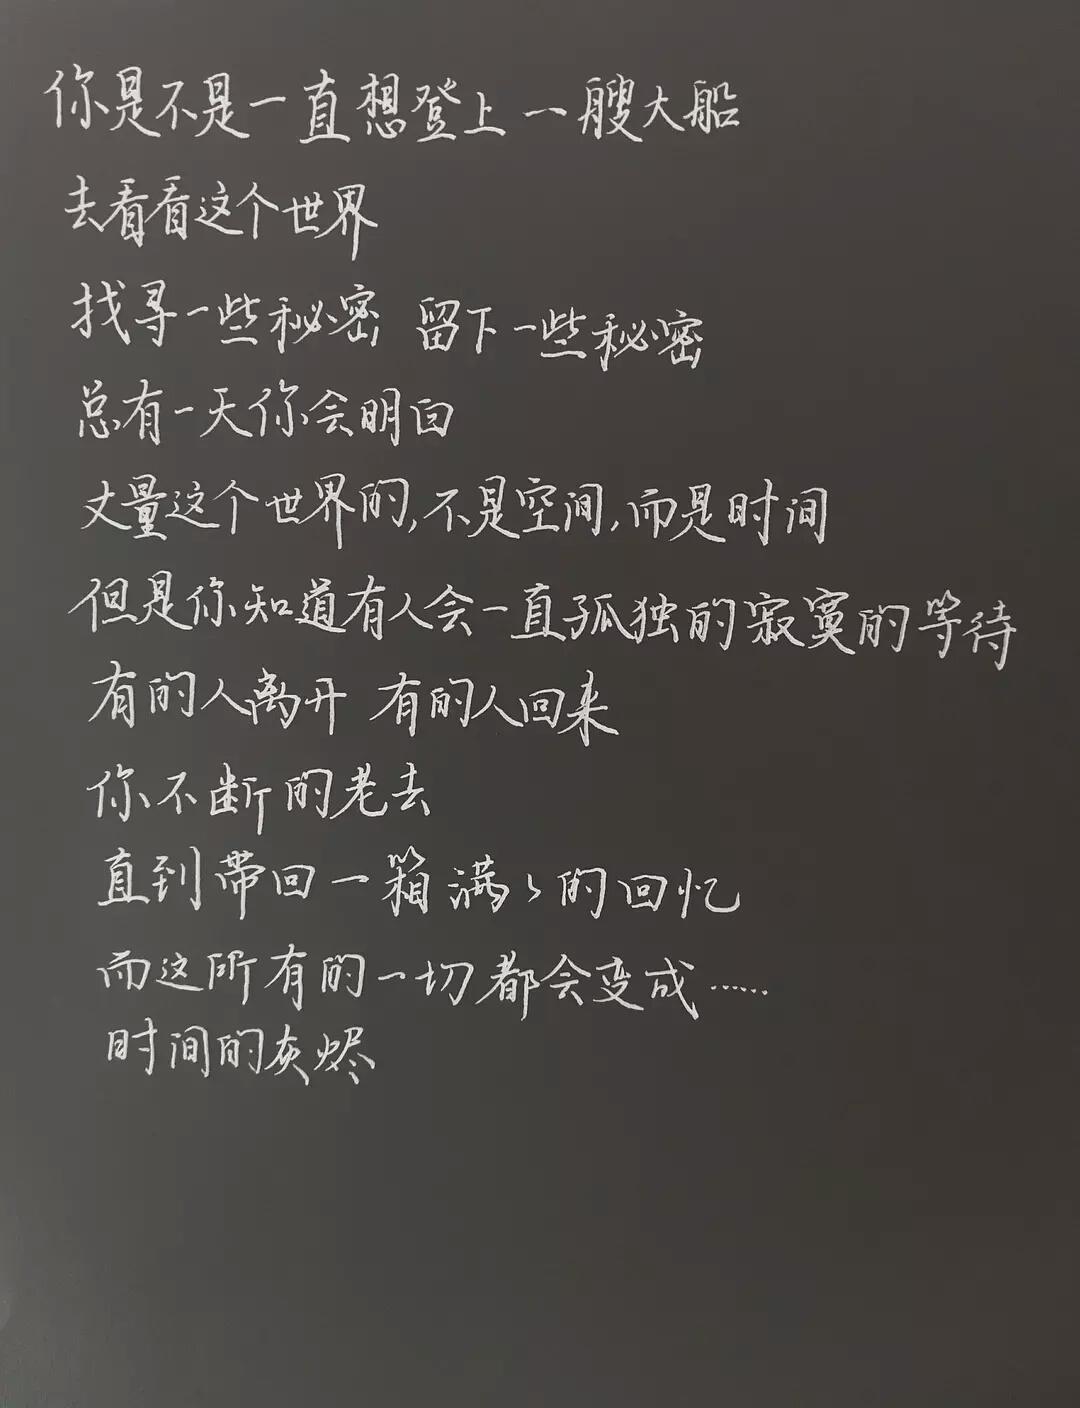 你是不是一直想登上一艘大船
去看看这个世界
找寻一些秘密 留下一些秘密
总有一天你会明白
丈量这个世界的,不是空间,而是时间
但是你知道有人会一直孤独的寂寞的等待
有的人离开 有的人回来
你不断的老去
直到带回一箱满々的回忆
而这所有的一切都会变成……
时间的灰烬